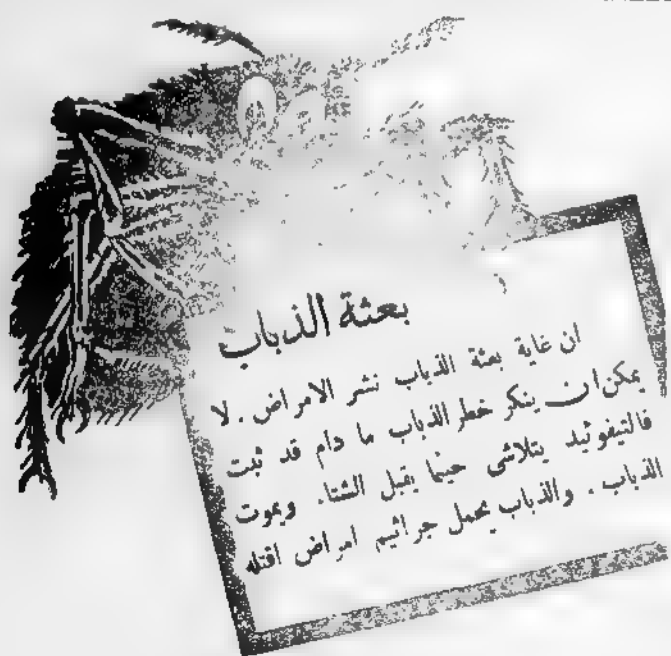 بعثة الذباب
ان غاية بعثة الذباب نشر الامراض. لا
يمكن ان ينكر خطر الذباب ما دام قد ثبت
فالتيفوئيد يتلاشى حينما يقبل الشتا. ويموت
الذباب. والذباب يحمل جراثيم امراض اقتله